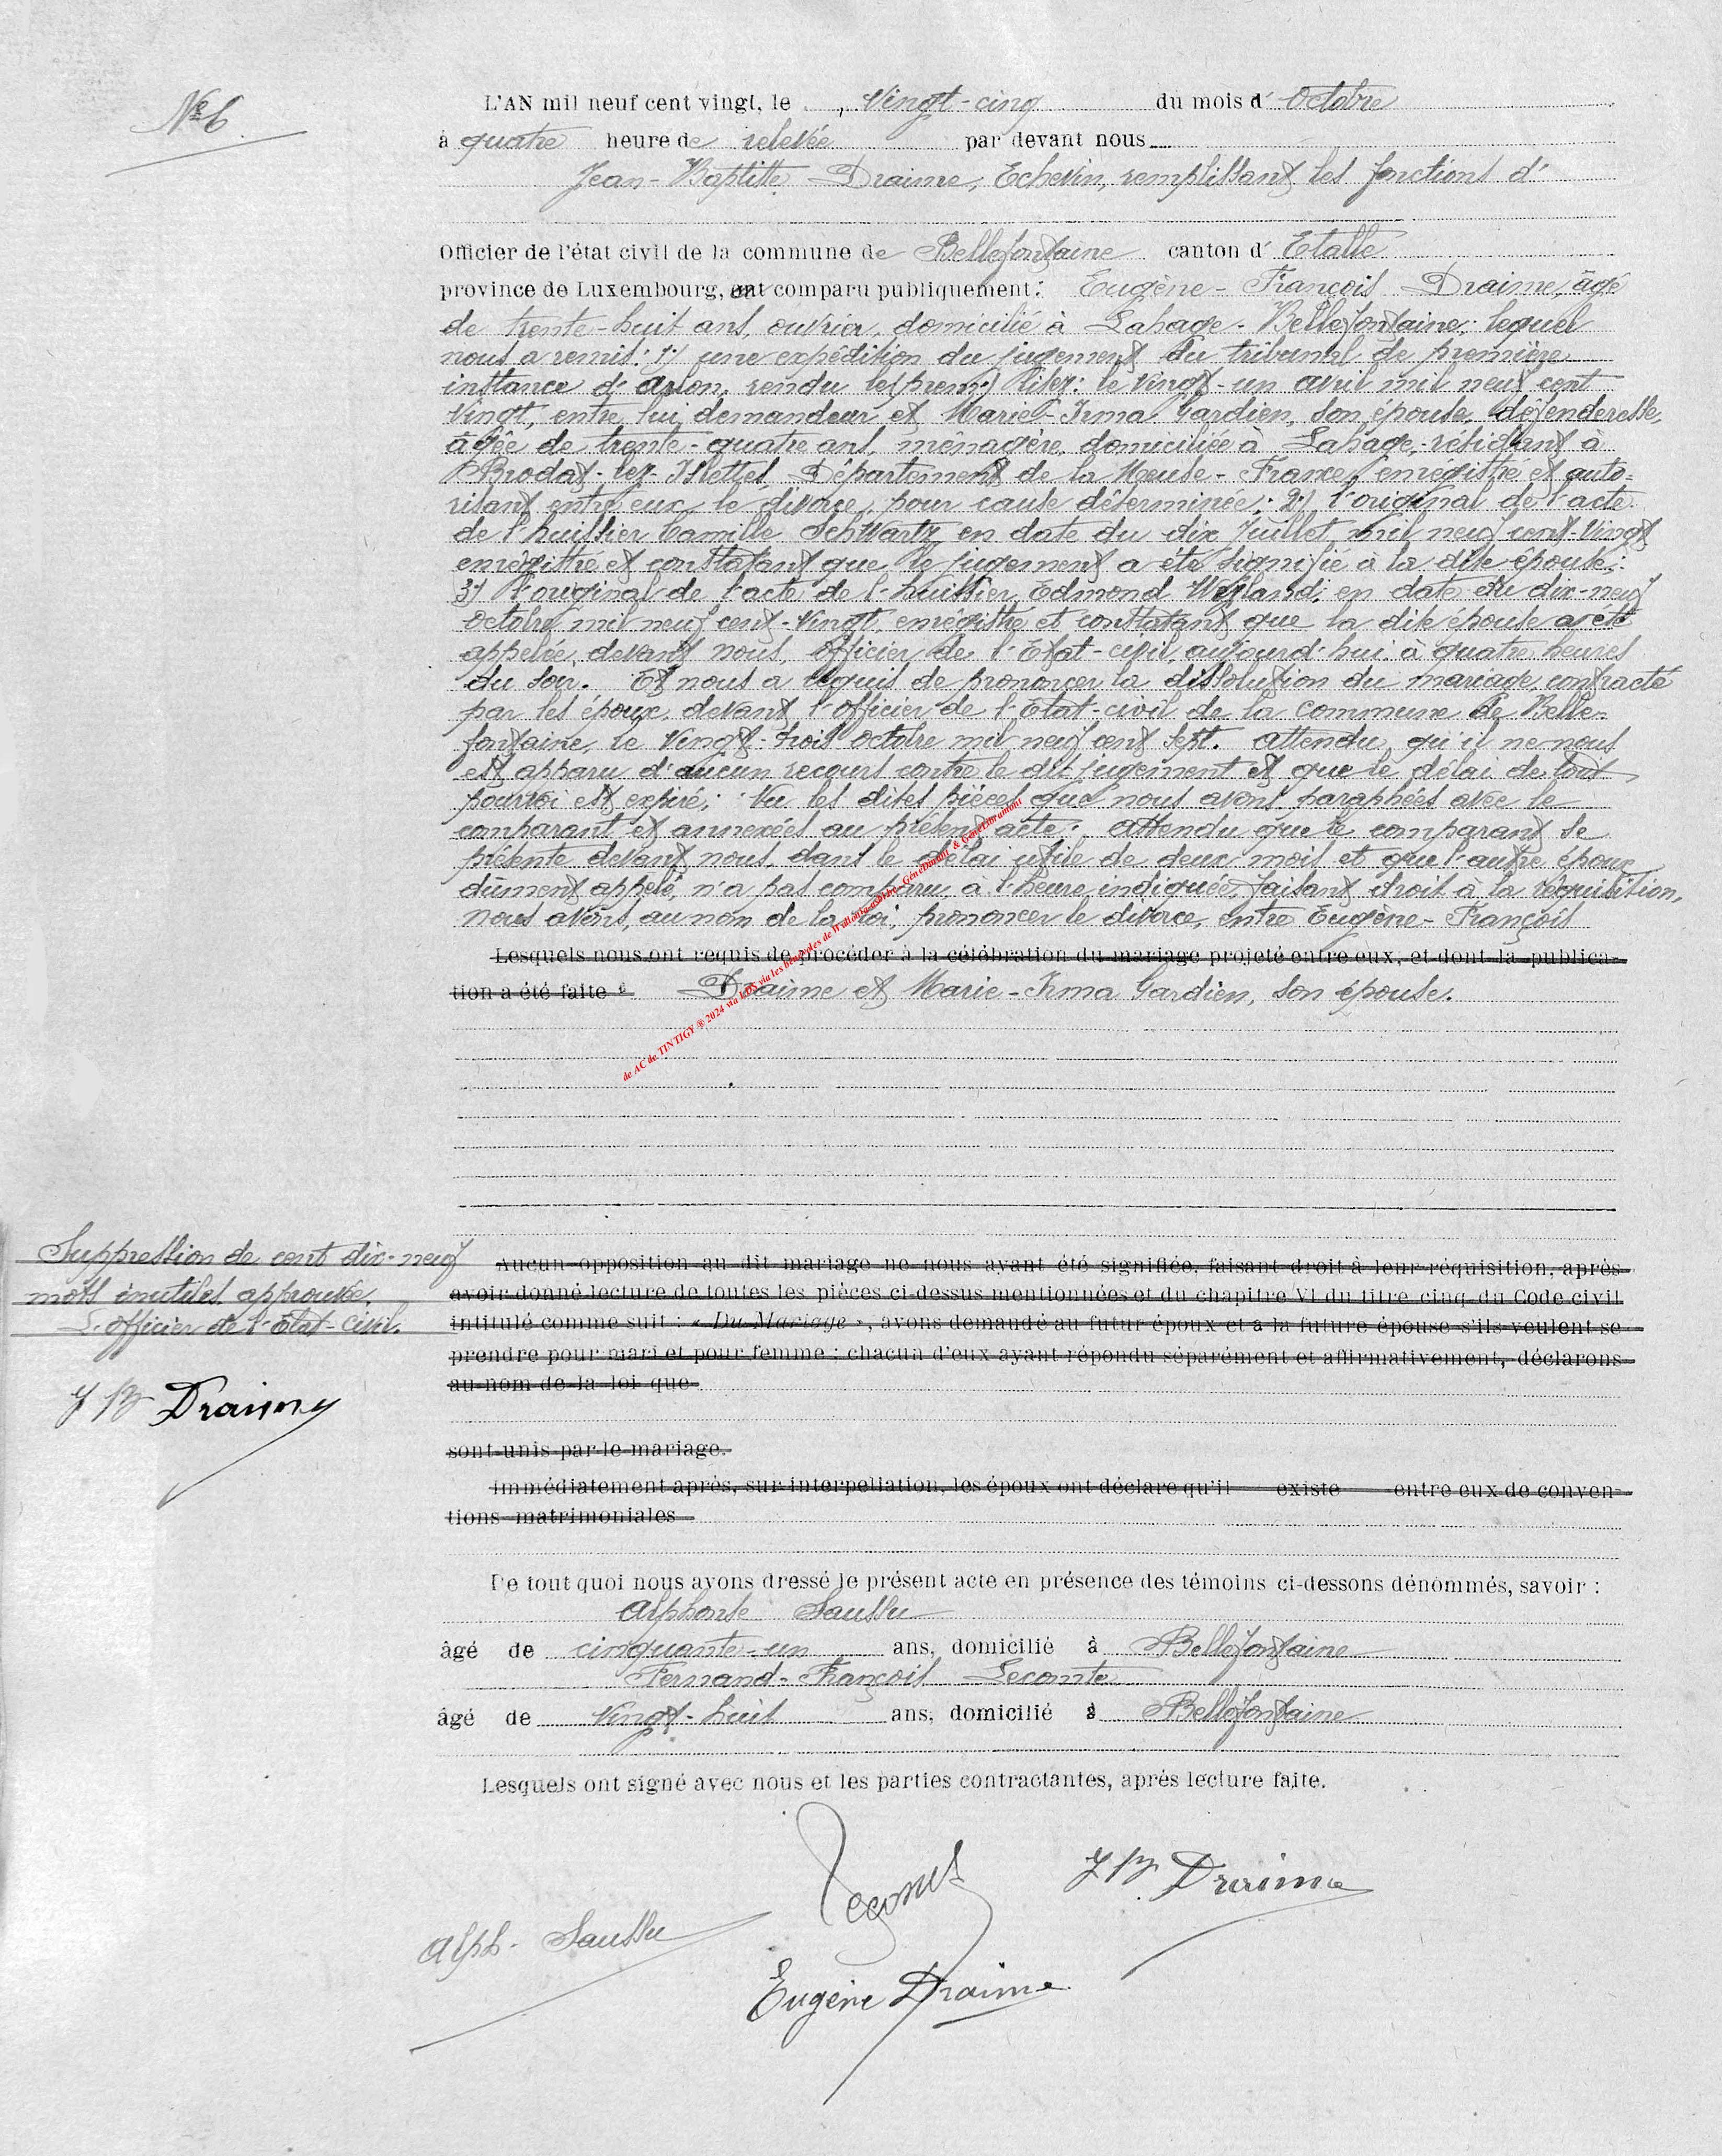 N° 6
L'AN mil neuf cent vingt, le , Vingt-cinq du mois d' Octobre
à quatre heure de relevée par devant nous
Jean-Baptiste Draime, Echevin, remplissant les fonctions d'
Officier de l'état civil de la commune de Bellefontaine canton d' Etalle
province de Luxembourg, est comparu publiquement: Eugène-François Draime, âgé
de trente-huit ans, ouvrier, domicilié à Lahage-Bellefontaine; lequel
nous a remis: 1°) une expédition du jugement du tribunal de première
instance d'Arlon, rendu le (prem) lisez: le vingt-un avril mil neuf cent
vingt, entre lui demandeur et Marie-Irma Gardien, son épouse, défenderesse,
âgée de trente-quatre ans, ménagère, domiciliée à Lahage, résidant à
Brodat-lez-Islettes, Département de la Meuse-France, enregistré et auto-
risant entre eux le divorce, pour cause déterminée; 2°) l'original de l'acte
de l'huissier Camille Schwartz en date du dix Juillet mil neuf cent-vingt
enregistré et constatant que le jugement a été signifié à la dite épouse;
3°) l'original de l'acte de l'huissier Edmond Weyland; en date du dix-neuf
Octobre mil neuf cent-vingt, enregistré et constatant que la dite épouse a été
appelée, devant nous, officier de l'Etat-civil, aujourd'hui à quatre heures
du soir. Et nous a requis de prononcer la dissolution du mariage, contracté
par les époux, devant l'officier de l'Etat-civil de la commune de Belle-
fontaine, le Vingt-trois octobre mil neuf cent sept. Attendu qu'il ne nous
est apparu d'aucun recours contre le dit jugement et que le délai de tout
pourvoi est expiré; Vu les dites pièces que nous avons paraphées avec le
comparant et annexées au présent acte; Attendu que le comparant se
présente devant nous, dans le délai utile de deux mois et que l'autre époux,
dûment appelé, n'a pas comparu, à l'heure indiquée, faisant droit à la réquisition,
nous avons, au nom de la loi, prononcer le divorce, entre Eugène-François
Lesquels nous ont requis de procéder à la célébration du mariage projeté entre eux, et dont la publica-
tion a été faite à Draime et Marie-Irma Gardien, son épouse.
de AC de TINTIGY ® 2024 via LDS via les bénévoles de Wallonia asbl by GénéDinant & GénéLibramont
Suppression de cent dix-neuf
mots inutiles approuvée.
L'officier de l'Etat-Civil.
J B Draime
Aucun opposition au dit mariage ne nous ayant été signifiée, faisant droit à leur réquisition, après
avoir donné lecture de toutes les pièces ci-dessus mentionnées et du chapitre VI du titre cinq du Code civil
intitulé comme suit : « Du Mariage », avons demandé au futur époux et à la future épouse s'ils veulent se
prendre pour mari et pour femme ; chacun d'eux ayant répondu séparément et affirmativement, déclarons
au nom de la loi que
sont unis par le mariage.
Immédiatement après, sur interpellation, les époux ont déclaré qu'il existe entre eux de conven-
tions matrimoniales
De tout quoi nous avons dressé le présent acte en présence des témoins ci-dessons dénommés, savoir :
Alphonse Saussu
âgé de cinquante-un ans, domicilié à Bellefontaine
Fernand-François Lecomte
âgé de vingt-huit ans, domicilié à Bellefontaine
Lesquels ont signé avec nous et les parties contractantes, après lecture faite.
Lecomte
J B Draime
Alph. Saussu
Eugène Draime